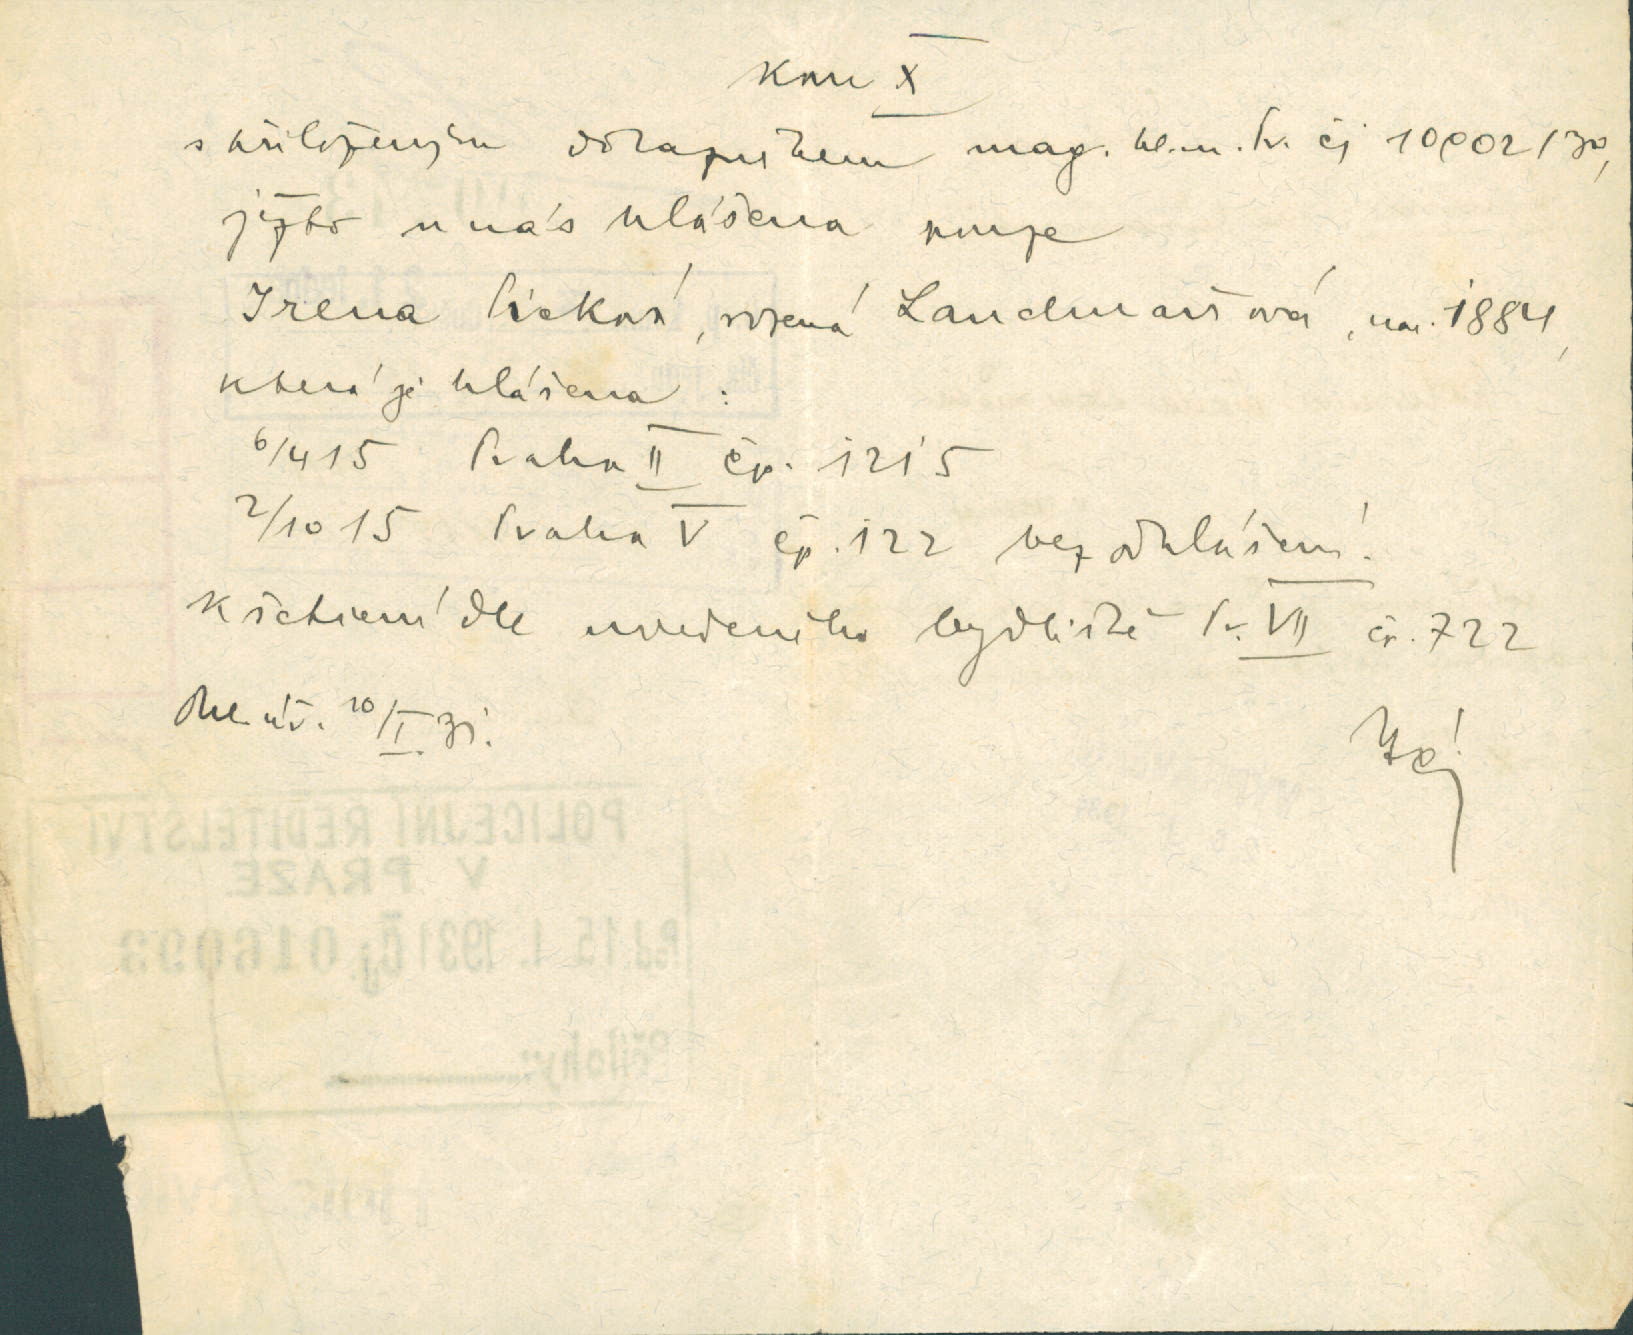 Kom X
s přiloženým dotazníkem mag. hl. m. Pr. čj 10002/30,
ježto u nás hlášena pouze
Irena Picková, rozená Landmanová, nar. 1884,
která je hlášena :
6/4 15 Praha II čp. 1215
2/10 15 Praha V čp. 122 bez odhlášení.
K šetření dle uvedeného bydliště Pr. VII čp. 722
Ohl. úř. 10/I 31.
POLICEJNÍ ŘEDITELSTVÍ
V PRAZE
15. I. 1931 Čj. 016093
Přílohy: